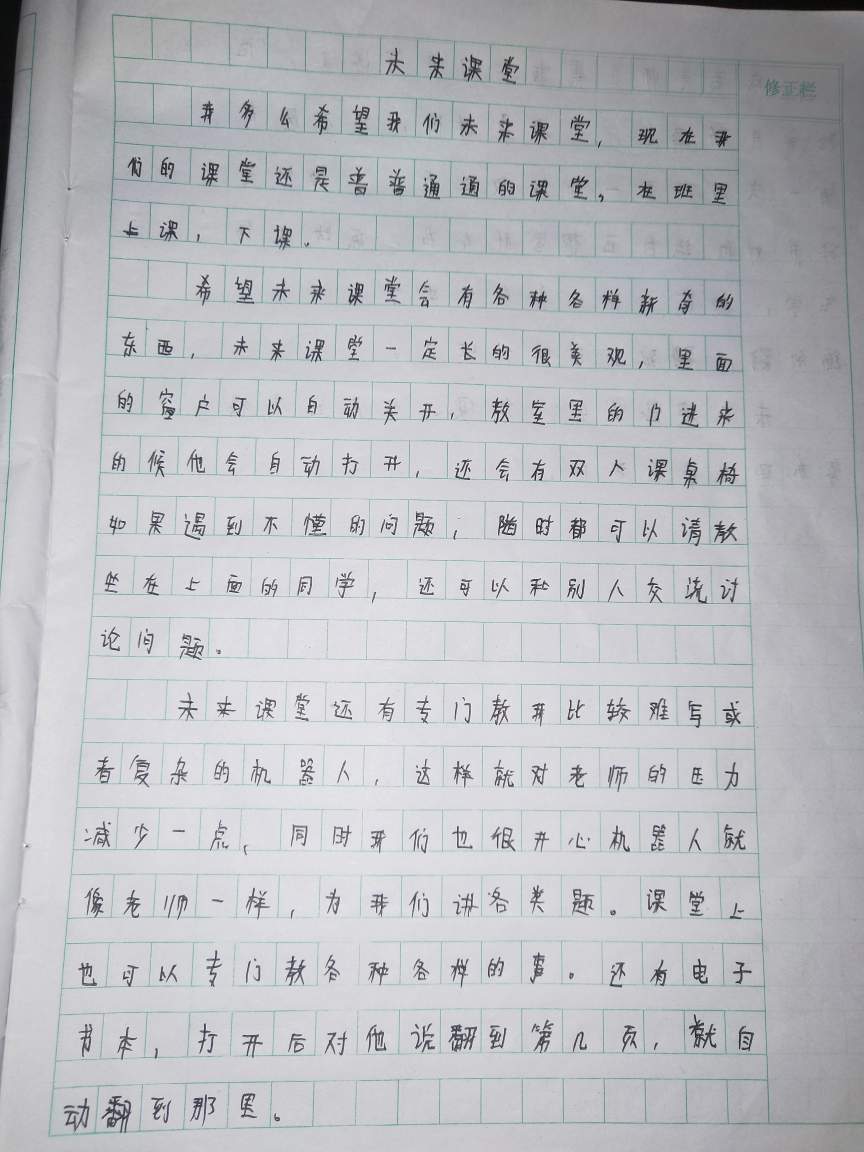 未来课堂
修正栏
我多么希望我们未来课堂，现在我
们的课堂还是普普通通的课堂，在班里
上课，下课．
希望未来课堂会有各种各样新奇的
东西，未来课堂一定长的很美观，里面
的窗户可以自动关开，教室里的门进来
的候他会自动打开，还会有双人课桌椅
如果遇到不懂的问题，随时都可以请教
坐在上面的同学，还可以和别人交流讨
论问题。
未来课堂还有专门教我比较难写或
者复杂的机器人，这样就对老师的压力
减少一点，同时我们也很开心机器人就
像老师一样，为我们讲各类题。课堂上
也可以专门教各种各样的事。还有电子
书本，打开后对他说翻到第几页，就自
动翻到那里。